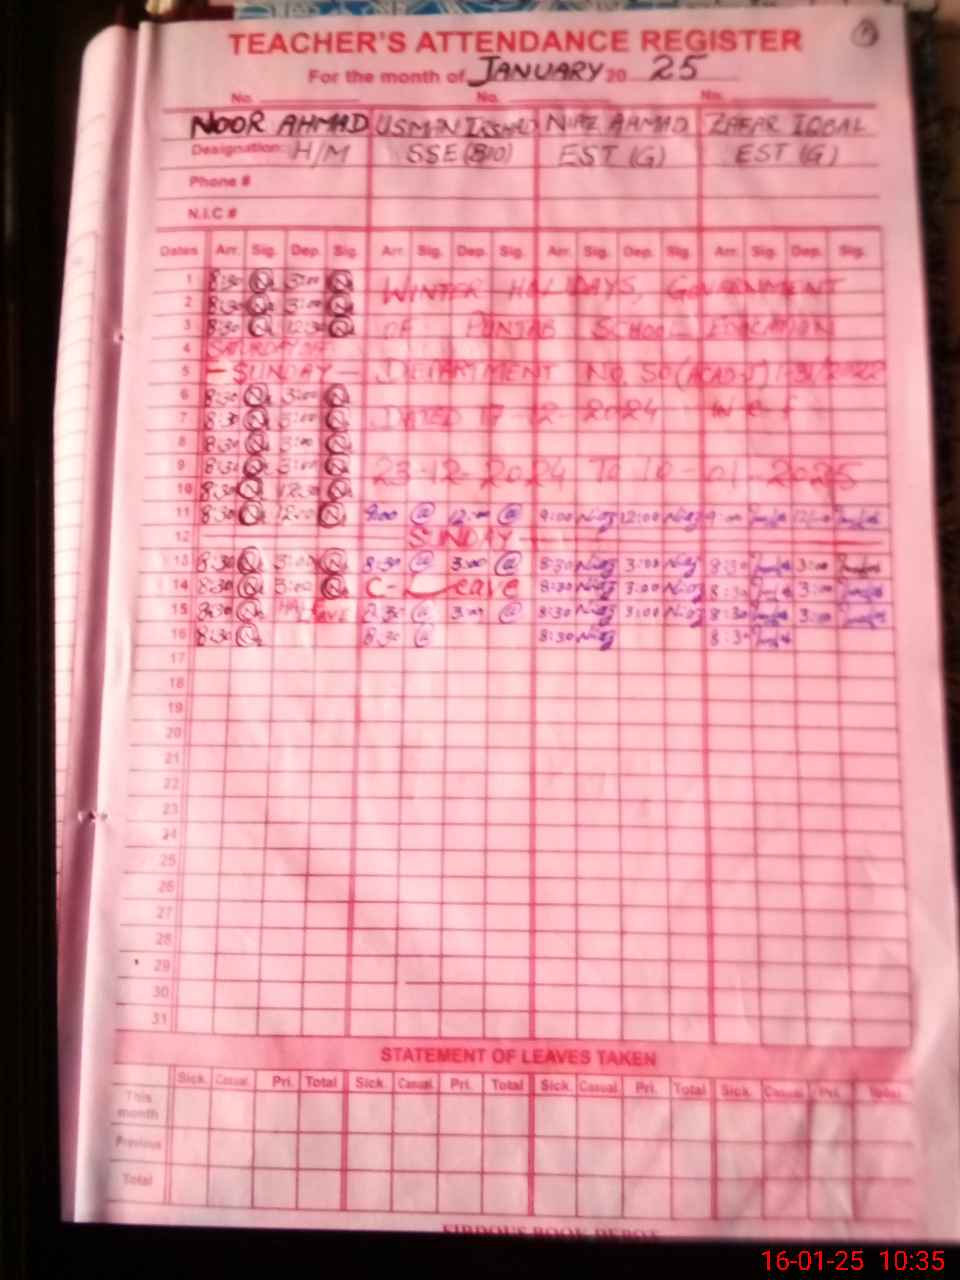 TEACHER'S ATTENDANCE REGISTER
For the month of JANUARY 20 25
No. No. No.
NOOR AHMAD USMAN IRSHAD NIAZ AHMAD ZAFAR IQBAL
Designation: H/M SSE (BIO) EST (G) EST (G)
Phone #
N.I.C #
Dates Arr. Sig. Dep. Sig. Arr. Sig. Dep. Sig. Arr. Sig. Dep. Sig. Arr. Sig. Dep. Sig.
1 8:30 3:00 WINTER HOLIDAYS, GOVERNMENT
2 8:30 3:00
3 8:30 12:30 OF PUNJAB SCHOOL EDUCATION
4 SATURDAY OFF
5 - SUNDAY - DEPARTMENT NO. SO (ACAD-I)
6 8:30 3:00
7 8:30 3:00 DATED 17-12-2024 w.e.f
8 8:30 3:00
9 8:30 3:00 23-12-2024 TO 10-01-2025
10 8:30 12:30
11 8:30 12:00 9:00 12:00 9:00 Niaz 12:00 Niaz 9:00 12:00
12 SUNDAY
13 8:30 3:00 8:30 3:00 8:30 Niaz 3:00 Niaz 8:30 3:00
14 8:30 3:00 C-Leave 8:30 Niaz 3:00 Niaz 8:30 3:00
15 8:30 LEAVE 8:30 3:00 8:30 Niaz 3:00 Niaz 8:30 3:00
16 8:30 8:30 8:30 Niaz 8:30
17
18
19
20
21
22
23
24
25
26
27
28
29
30
31
STATEMENT OF LEAVES TAKEN
Sick. Casual. Pri. Total Sick. Casual. Pri. Total Sick. Casual. Pri. Total Sick. Casual. Pri. Total
This month
Previous
Total
FIRDOUS BOOK DEPOT
16-01-25 10:35